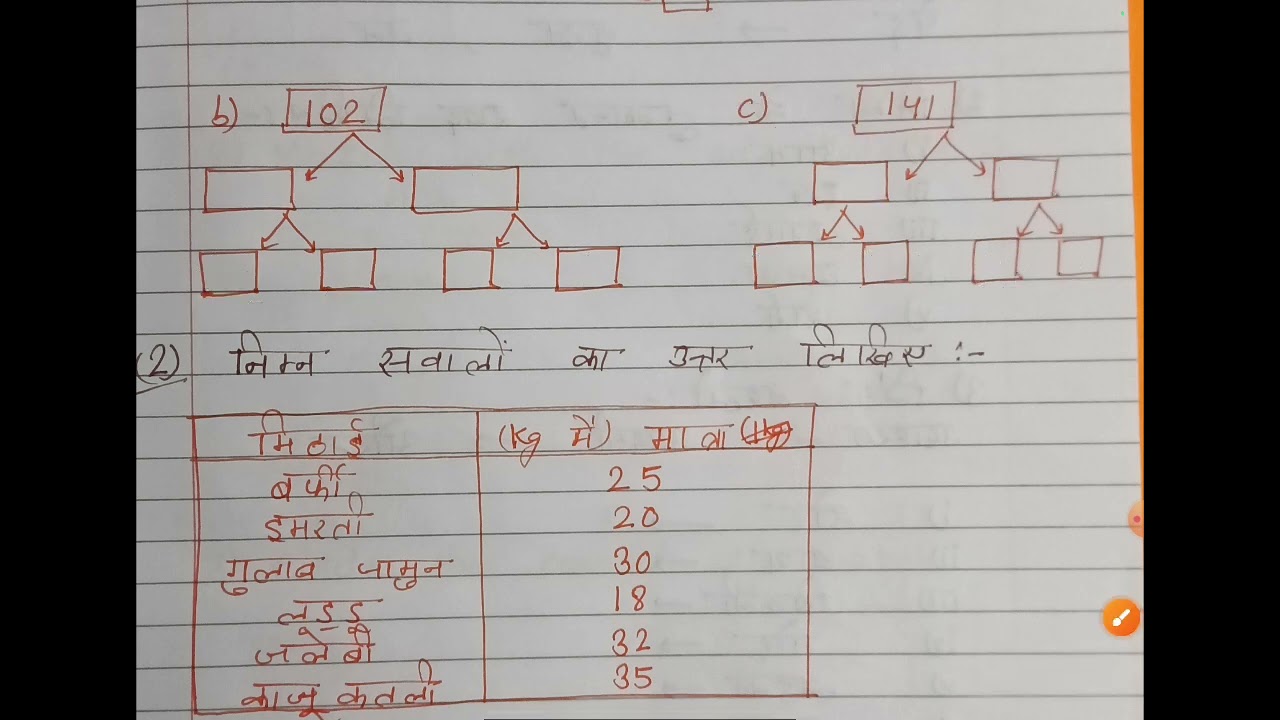 b) 102 c) 141
(2) निम्न सवालों का उत्तर लिखिए :-
मिठाई (Kg में) मात्रा
बर्फी 25
इमरती 20
गुलाब जामुन 30
लड्डू 18
जलेबी 32
काजू कतली 35